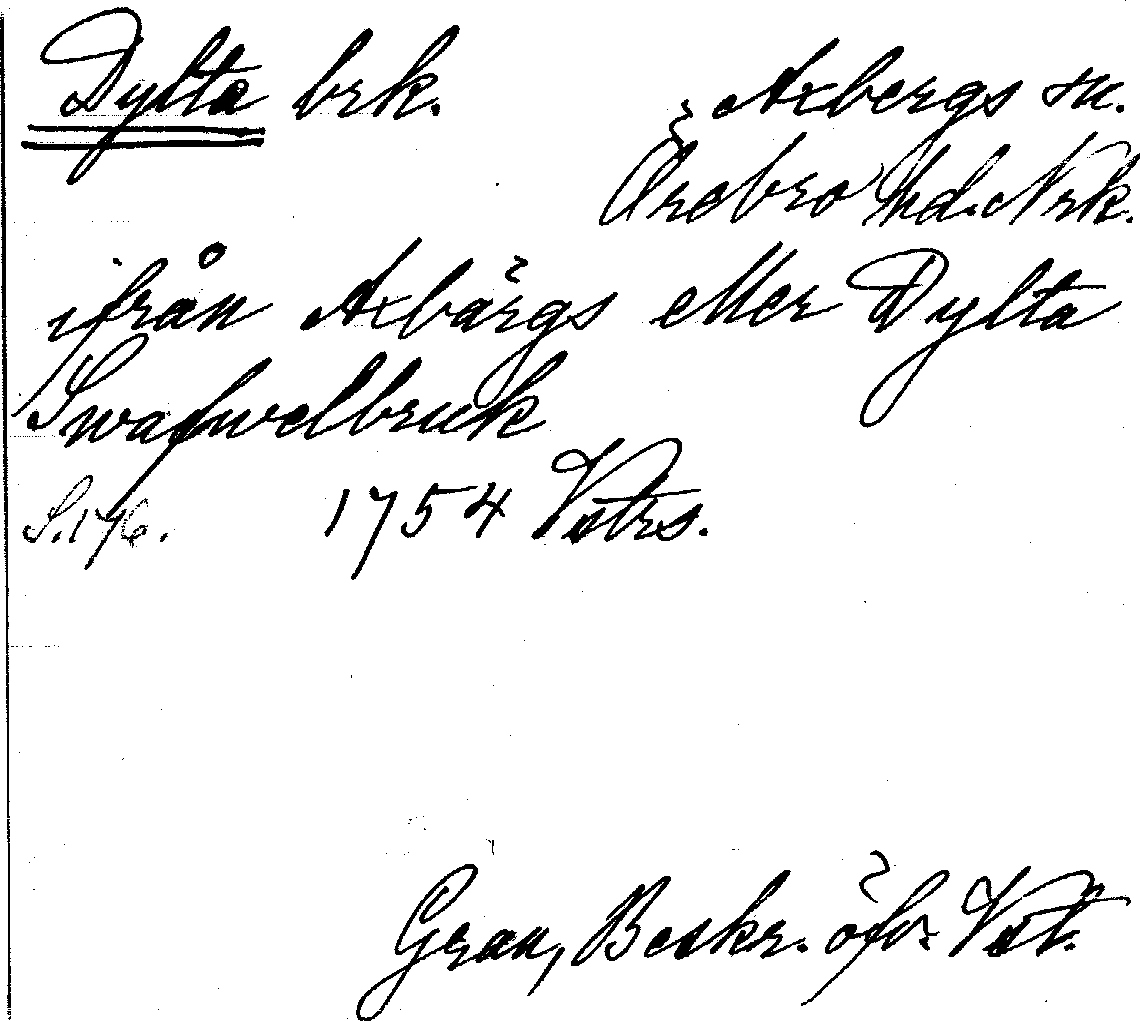 Dylta brk. Axbergs sn.
Örebro hd. Nrk.
ifrån Axbärgs eller Dylta
Swafwelbruk
S. 176. 1754 Vstrs.
Grau, Beskr. öfv. Vst.